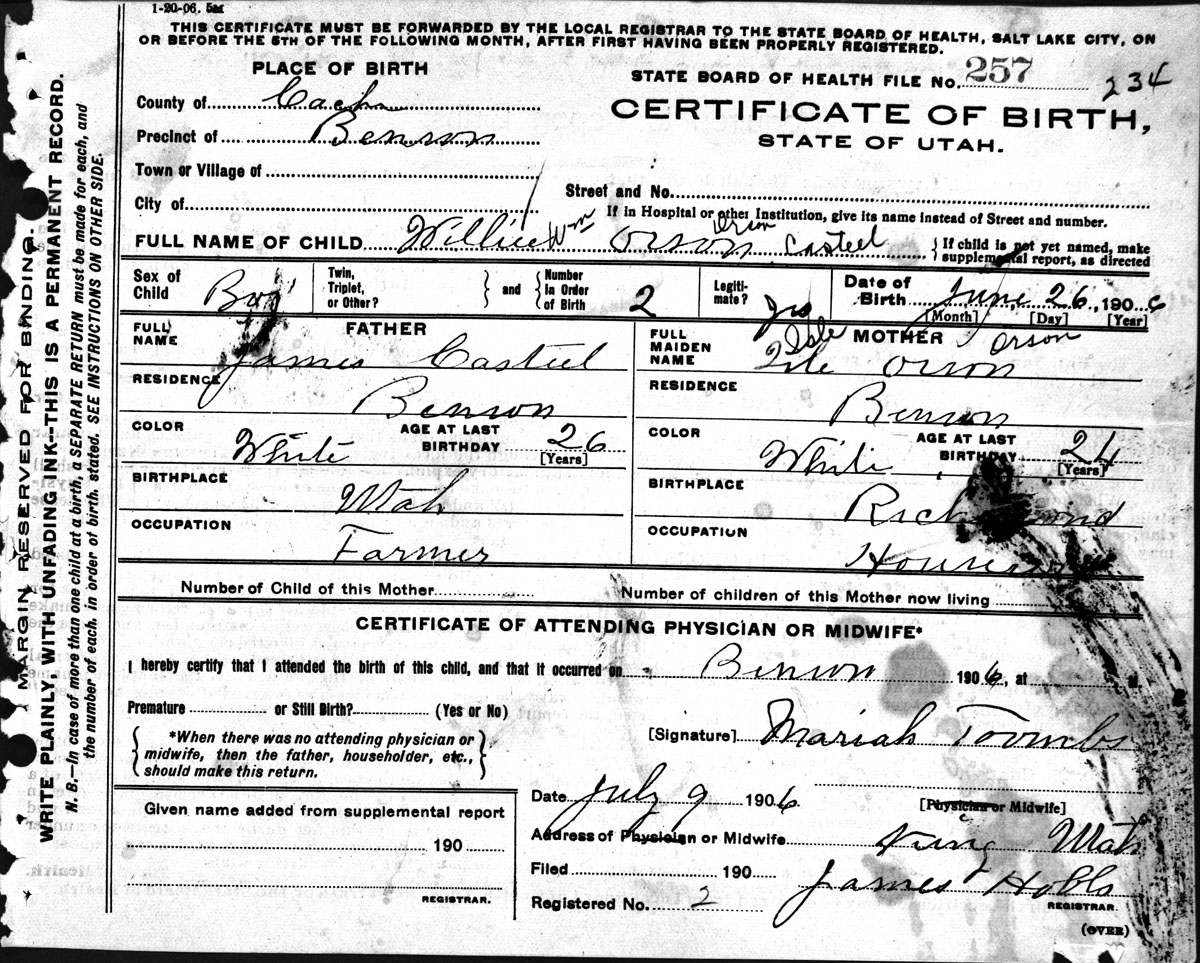 1-20-06. 5M
THIS CERTIFICATE MUST BE FORWARDED BY THE LOCAL REGISTRAR TO THE STATE BOARD OF HEALTH, SALT LAKE CITY, ON
OR BEFORE THE 5TH OF THE FOLLOWING MONTH, AFTER FIRST HAVING BEEN PROPERLY REGISTERED.
PLACE OF BIRTH
STATE BOARD OF HEALTH FILE No. 257 234
County of Cache
CERTIFICATE OF BIRTH,
Precinct of Benson
STATE OF UTAH.
Town or Village of
Street and No.
City of
If in Hospital or other Institution, give its name instead of Street and number.
Orson
FULL NAME OF CHILD Willie Wm Orson Casteel { If child is not yet named, make
supplemental report, as directed
Sex of Child Boy Twin, Triplet, or Other? } and { Number In Order of Birth 2 Legitimate? Yes Date of Birth June 26, 1906
[Month] [Day] [Year]
FATHER
MOTHER
FULL NAME James Casteel
FULL MAIDEN NAME Orson
Orson
RESIDENCE Benson
RESIDENCE Benson
COLOR White AGE AT LAST BIRTHDAY 26 [Years]
COLOR White AGE AT LAST BIRTHDAY 24 [Years]
BIRTHPLACE Utah
BIRTHPLACE Richmond
OCCUPATION Farmer
OCCUPATION
Number of Child of this Mother
Number of children of this Mother now living
CERTIFICATE OF ATTENDING PHYSICIAN OR MIDWIFE*
I hereby certify that I attended the birth of this child, and that it occurred on Benson 1906, at
Premature or Still Birth? (Yes or No)
*When there was no attending physician or
midwife, then the father, householder, etc.,
should make this return.
[Signature] Mariah Toombs
[Physician or Midwife]
Date July 9 1906
Address of Physician or Midwife Utah
Filed 190
James Hobbs
REGISTRAR.
Registered No. 2
(OVER)
Given name added from supplemental report
190
REGISTRAR.
MARGIN RESERVED FOR BINDING.
WRITE PLAINLY, WITH UNFADING INK--THIS IS A PERMANENT RECORD.
N. B.—In case of more than one child at a birth, a SEPARATE RETURN must be made for each, and
the number of each, in order of birth, stated. SEE INSTRUCTIONS ON OTHER SIDE.